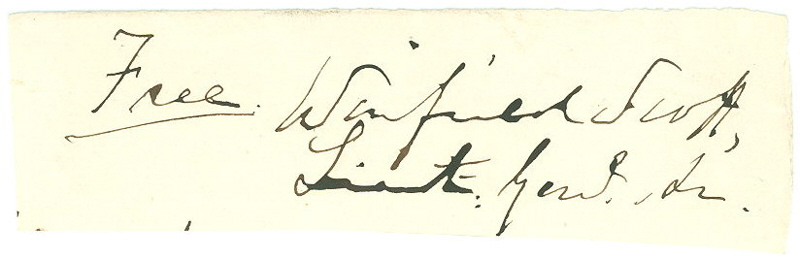 Free. Winfield Scott,
Lieut. Genl.